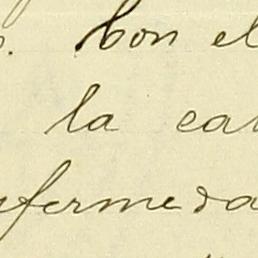 . Con el
la ca
fermeda